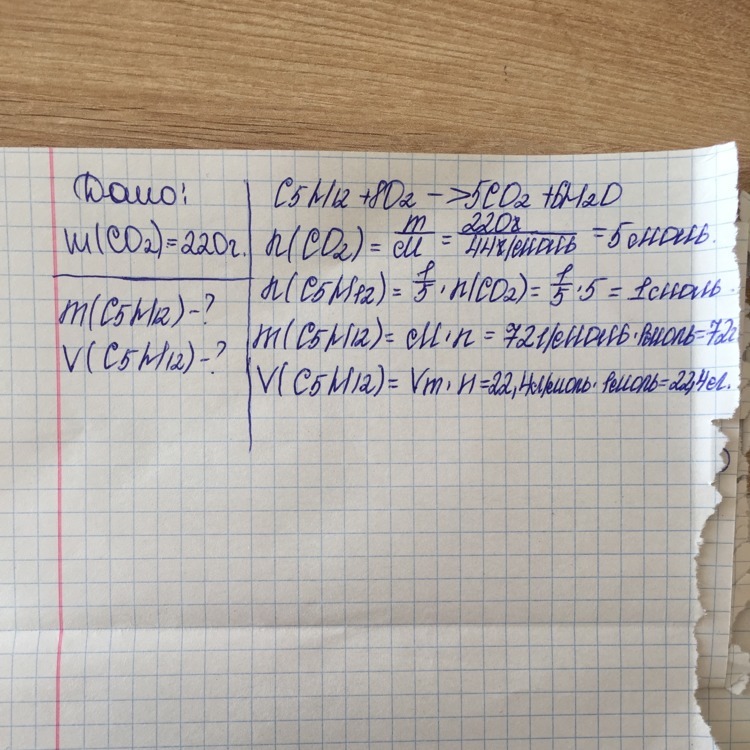 Дано:
m(CO2)=220г.
m(C5H12)-?
V(C5H12)-?
C5H12 +8O2 —>5CO2 +6H2O
n(CO2) = m/M = 220г/44г/моль = 5 моль.
n(C5H12) = 1/5 · n(CO2) = 1/5 · 5 = 1моль.
m(C5H12) = M·n = 72г/моль·1моль=72г
V(C5H12) = Vm·n=22,4л/моль·1моль=22,4л.